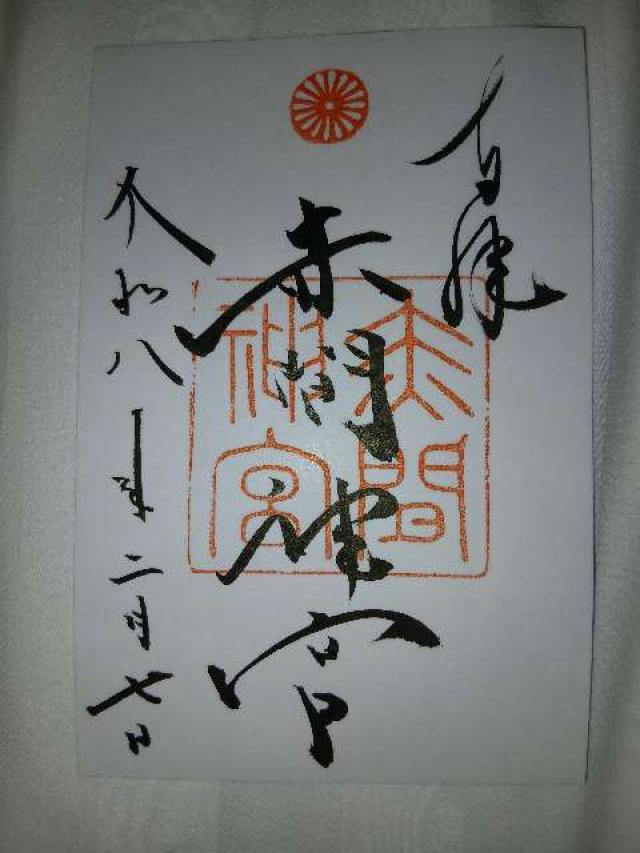 奉拝
赤間神宮
赤間神宮
令和八年二月七日